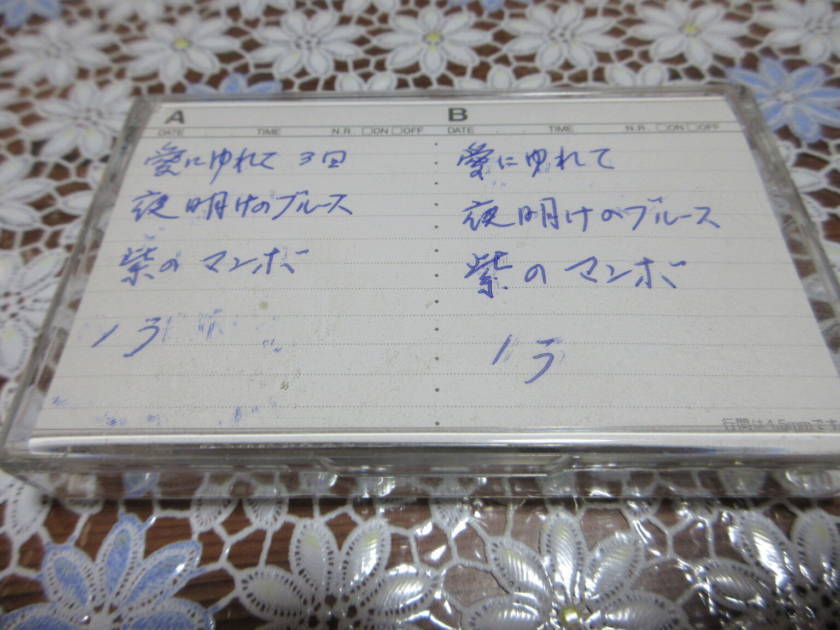 A
DATE TIME N.R. □ON □OFF
愛にゆれて 3回
夜明けのブルース
紫の マンボ
B
DATE TIME N.R. □ON □OFF
愛にゆれて
夜明けのブルース
紫の マンボ